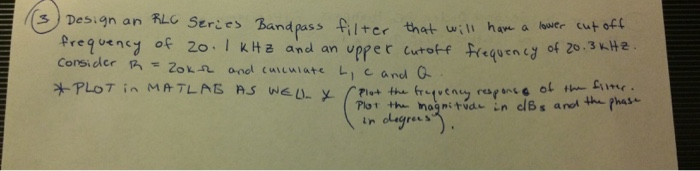 (3) Design an RLC Series Bandpass filter that will have a lower cutoff
frequency of 20.1 kHz and an upper cutoff frequency of 20.3 kHz.
Consider R = 20kΩ and calculate L, C and Q.
* PLOT in MATLAB AS WELL * (Plot the frequency response of the filter.
Plot the magnitude in dBs and the phase
in degrees).